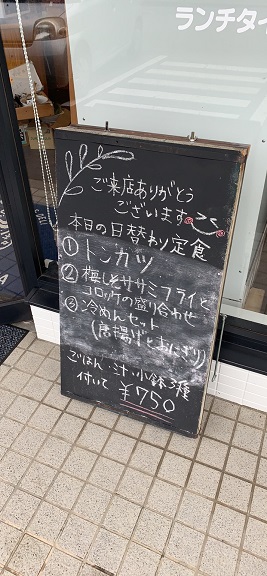 ランチタイ
ご来店ありがとう
ございます
本日の日替わり定食
① トンカツ
② 梅しそササミフライと
コロッケの盛り合わせ
③ 冷めんセット
(唐揚げとおにぎり)
ごはん・汁・小鉢3種
付いて ¥750